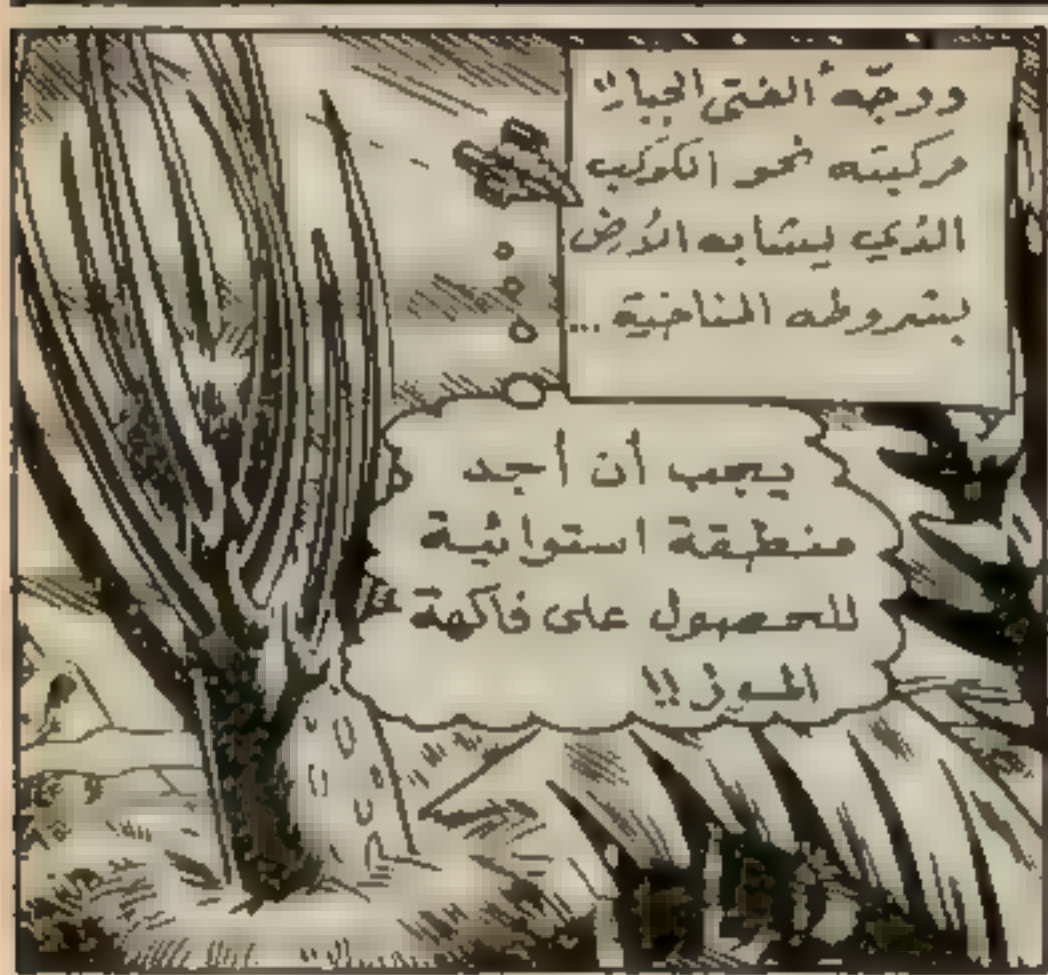 ووجّه "الفتى الجبار"
مركبته نحو الكوكب
الذي يشابه الأرض
بشروطه المناخية ...
يجب أن أجد
منطقة استوائية
للحصول على فاكهة
الموز !!